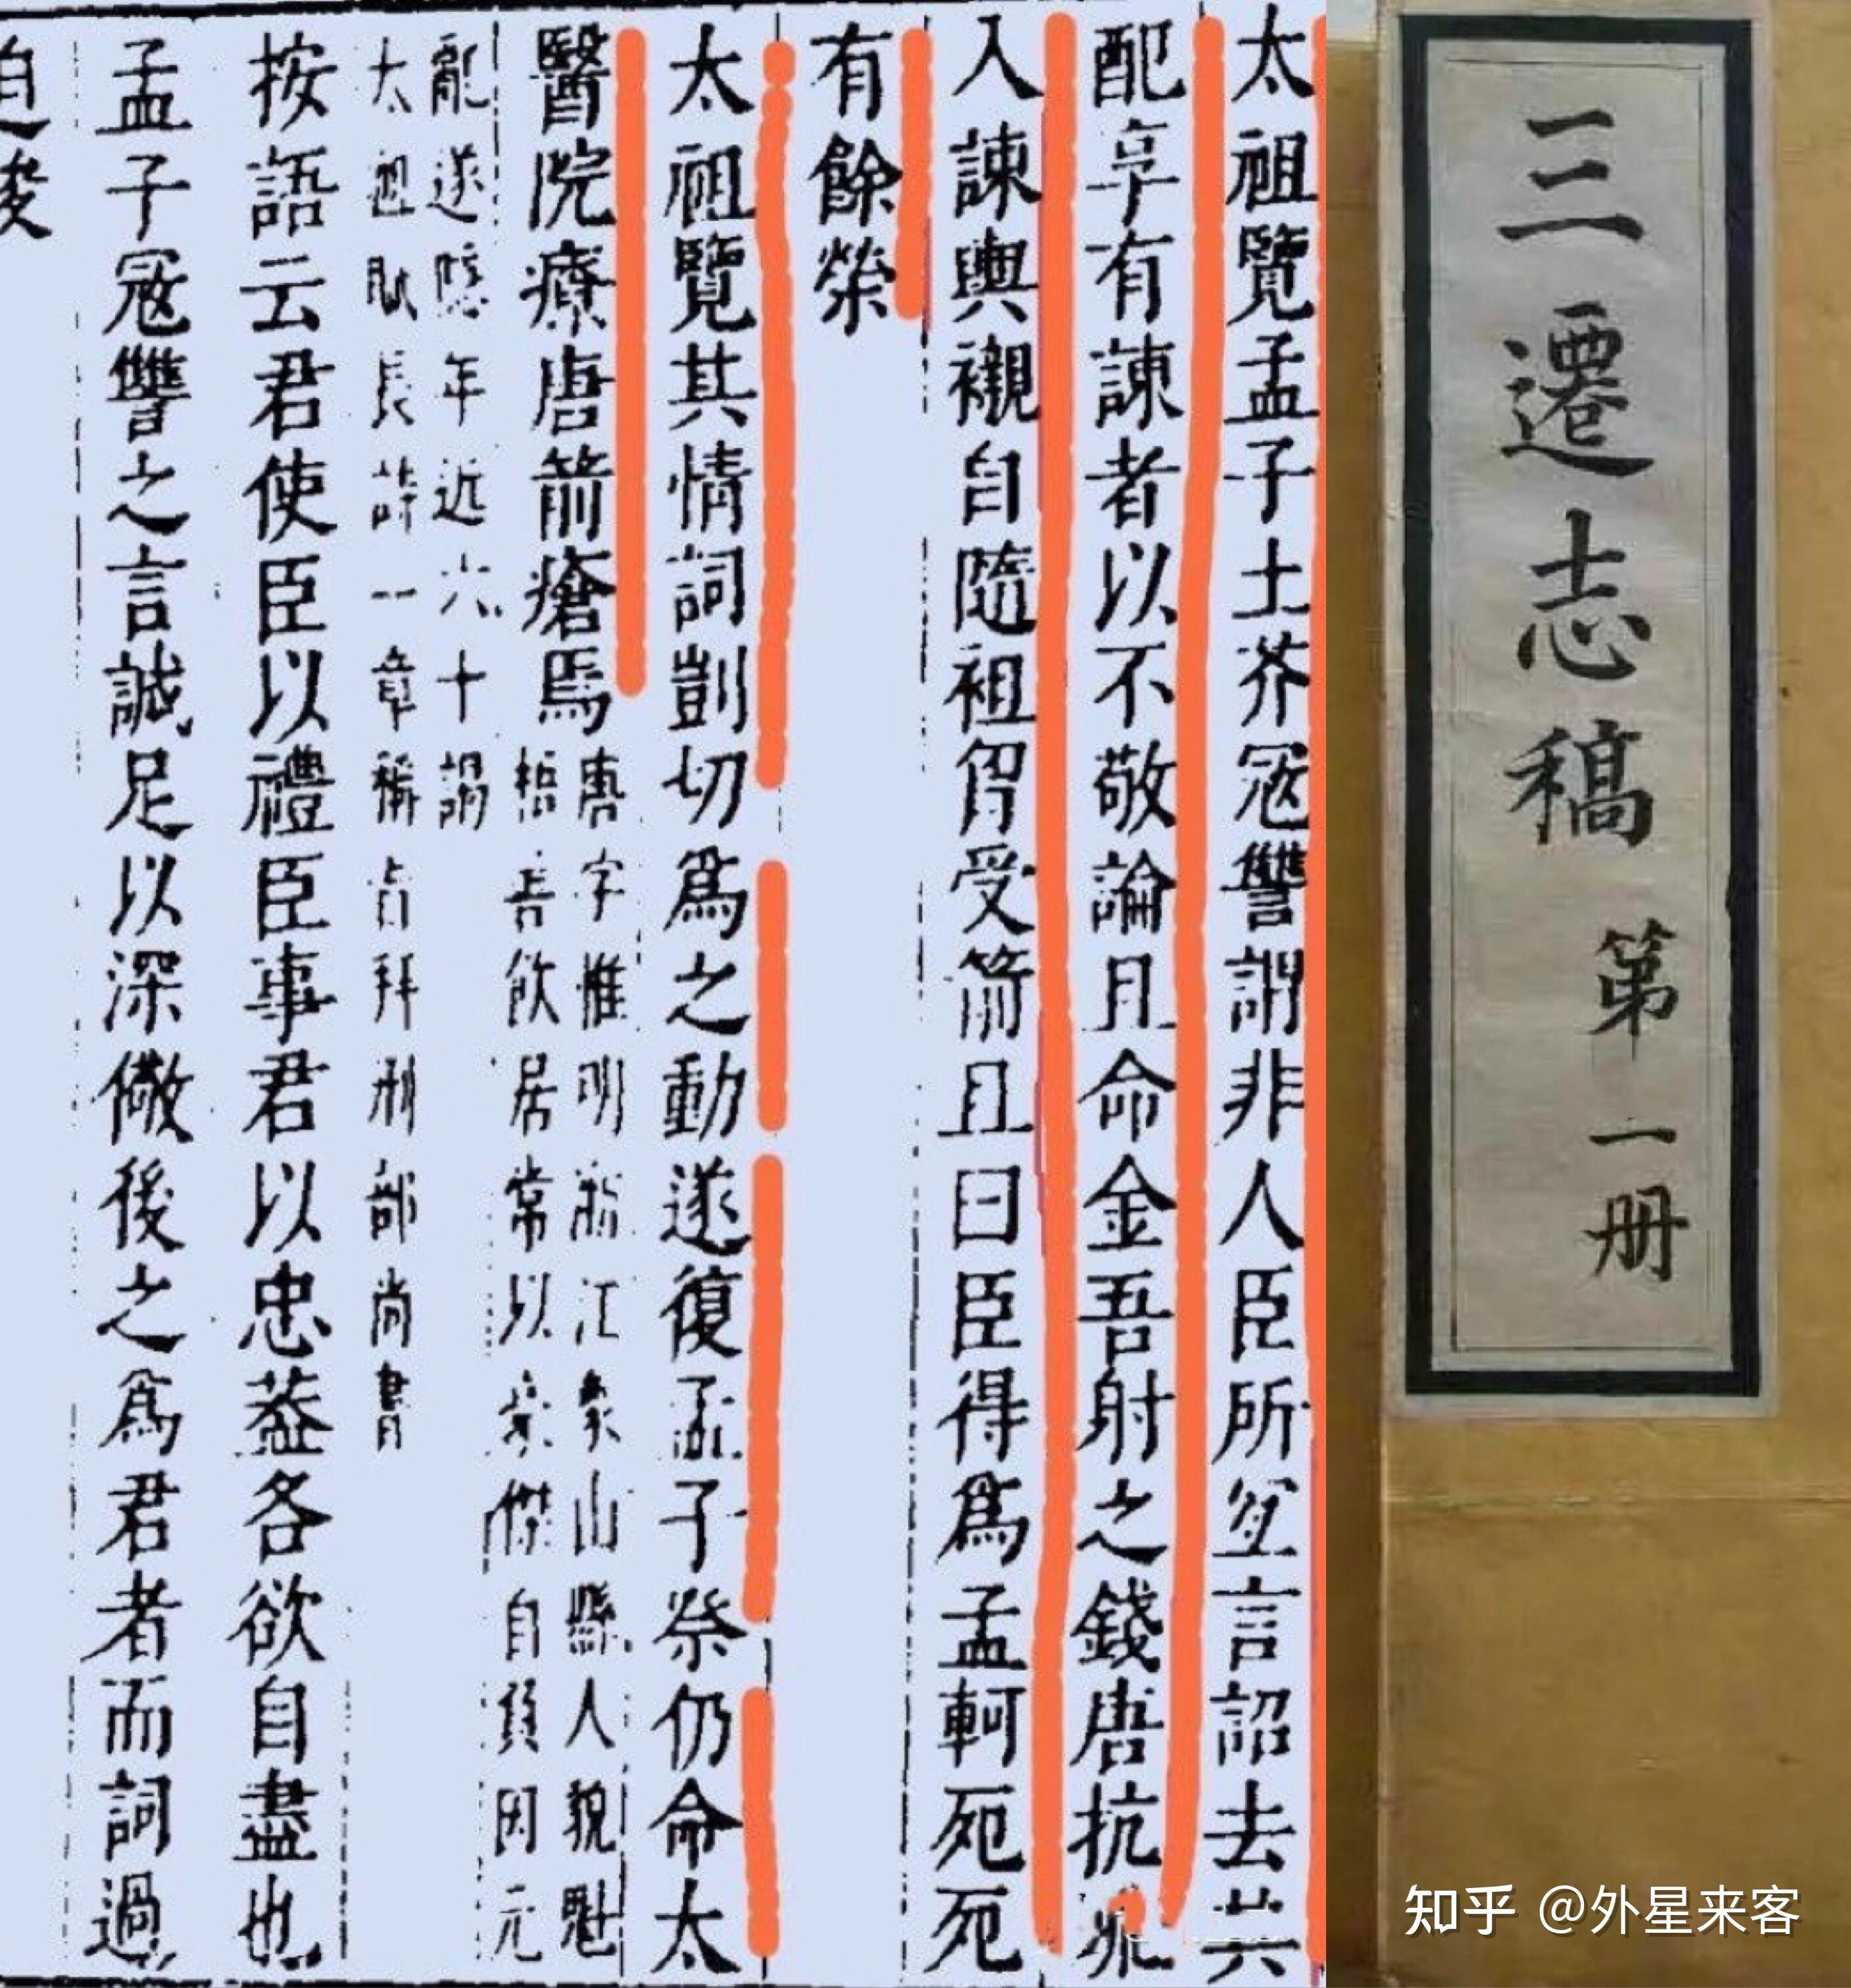 太祖覽孟子土芥寇讐謂非人臣所宜言詔去其
配享有諫者以不敬論且命金吾射之錢唐抗疏
入諫輿櫬自隨袒胷受箭且曰臣得為孟軻死死
有餘榮
太祖覽其情詞剴切為之動遂復孟子祭仍命太
醫院療唐箭瘡焉
唐字惟明浙江象山縣人貌魁
梧善飲居常以豪傑自負因元
亂遂隱年近六十謁
太祖賦長詩一章稱旨拜刑部尚書
按語云君使臣以禮臣事君以忠葢各欲自盡也
孟子寇讐之言誠足以深儆後之為君者而詞過
迫峻
三遷志稿 第一册
知乎 @外星来客